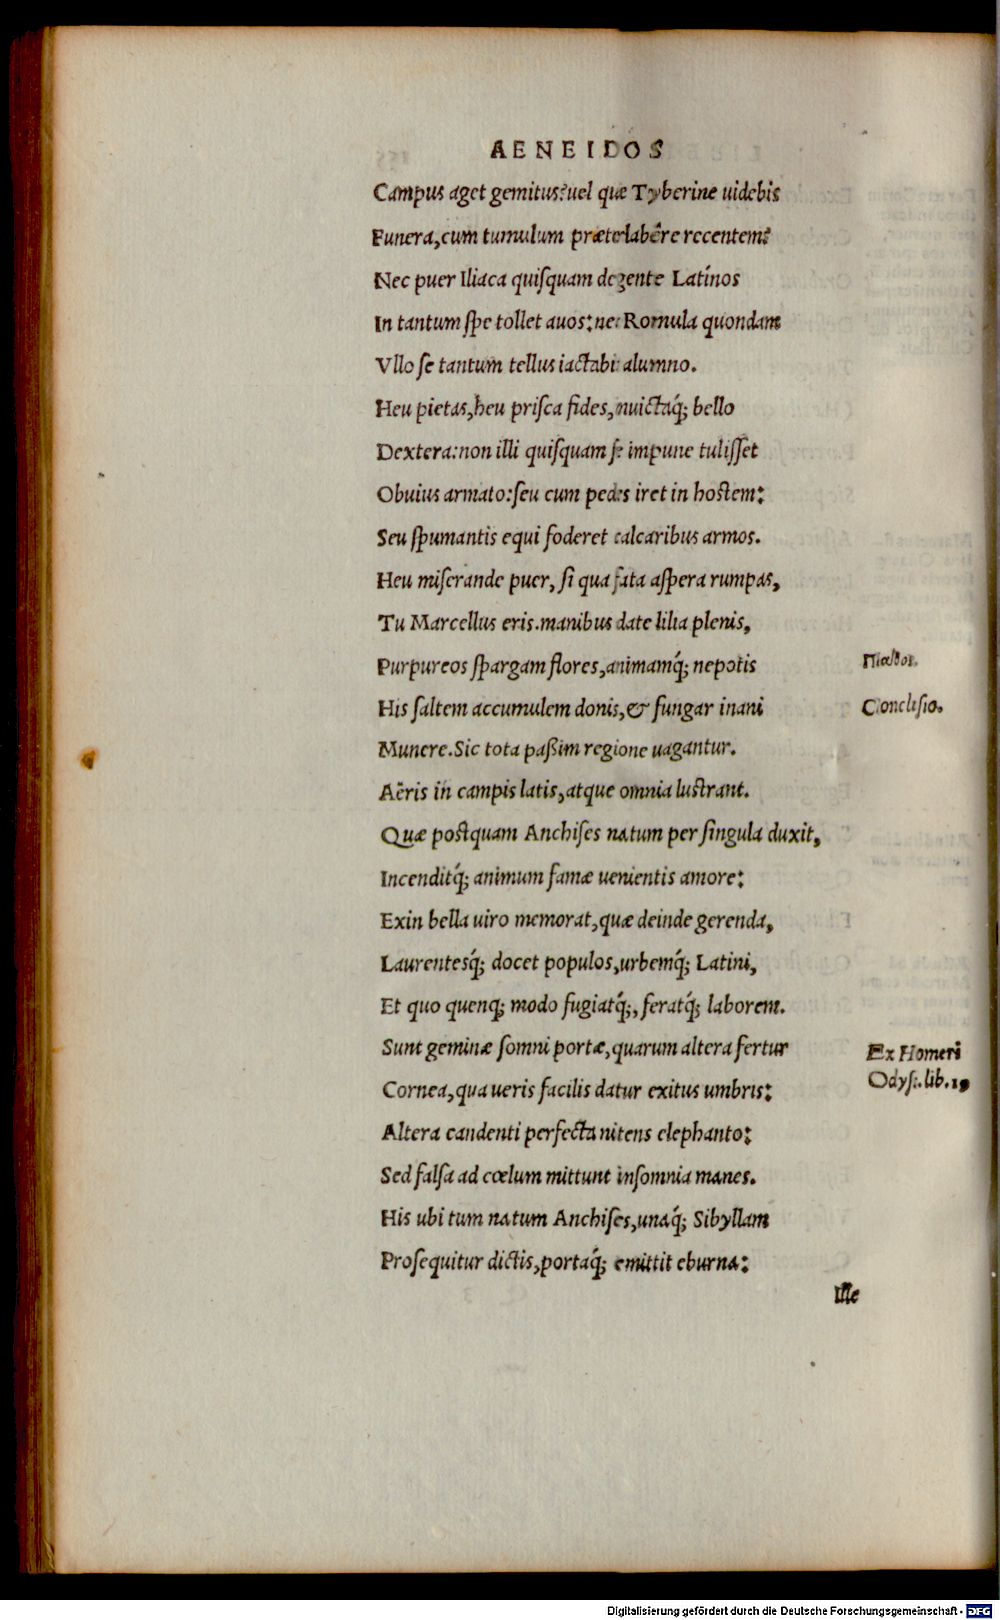 AENEIDOS
Campus aget gemitus? uel quæ Tyberine uidebis
Funera, cum tumulum præterlabêre recentem?
Nec puer Iliaca quiſquam de gente Latínos
In tantum ſpe tollet auos: nec Romula quondam
Vllo ſe tantum tellus iactabit alumno.
Heu pietas, heu priſca fides, inuictaq́; bello
Dextera: non illi quiſquam ſe impune tuliſſet
Obuius armato: ſeu cum pedes iret in hostem:
Seu ſpumantis equi foderet calcaribus armos.
Heu miſerande puer, ſi qua fata aſpera rumpas,
Tu Marcellus eris. manibus date lilia plenis,
Purpureos ſpargam flores, animamq́; nepotis
Πάθος.
His ſaltem accumulem donis, & fungar inani
Concluſio.
Munere. Sic tota paßim regione uagantur.
Aëris in campis latis, atque omnia lustrant.
Quæ postquam Anchiſes natum per ſingula duxit,
Incenditq́; animum famæ uenientis amore:
Exin bella uiro memorat, quæ deinde gerenda,
Laurentesq́; docet populos, urbemq́; Latini,
Et quo quenq; modo fugiatq́;, feratq́; laborem.
Sunt geminæ ſomni portæ, quarum altera fertur
Ex Homeri
Cornea, qua ueris facilis datur exitus umbris:
Odyſ. lib. 19
Altera candenti perfecta nitens elephanto:
Sed falſa ad cœlum mittunt inſomnia manes.
His ubi tum natum Anchiſes, unaq́; Sibyllam
Proſequitur dictis, portaq́; emittit eburna:
Ille
Digitalisierung gefördert durch die Deutsche Forschungsgemeinschaft - DFG